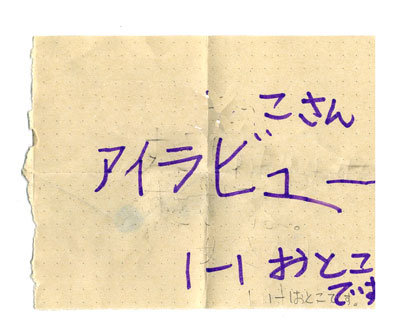 こさん
アイラビュー
1-1 おとこ
です
1-1おとこです。